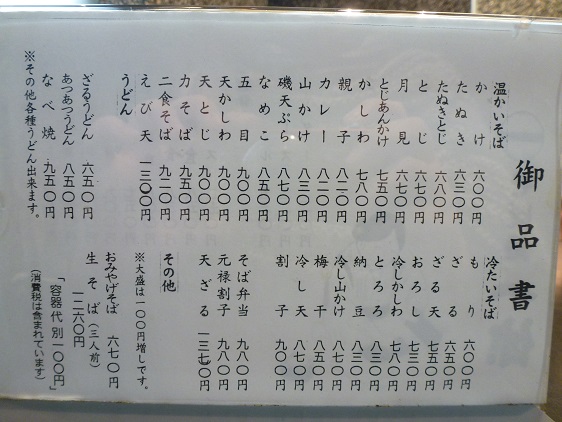 御品書
温かいそば
かけ 六〇〇円
たぬき 六三〇円
たぬきとじ 六八〇円
とじ 六七〇円
月見 六七〇円
とじあんかけ 七五〇円
かしわ 七八〇円
親子 八二〇円
カレー 八二〇円
山かけ 八三〇円
磯天ぷら 八七〇円
なめこ 八五〇円
五目 九〇〇円
天かしわ 九〇〇円
天とじ 九〇〇円
力そば 九五〇円
二食そば 九二〇円
えび天 一三〇〇円
うどん
ざるうどん 六五〇円
あつあつうどん 八五〇円
なべ焼 九五〇円
※その他各種うどん出来ます。
冷たいそば
もり 六〇〇円
ざる 六五〇円
ざる天 七五〇円
おろし 七三〇円
冷しかしわ 七八〇円
とろろ 八三〇円
納豆 八三〇円
冷し山かけ 八七〇円
梅干 八五〇円
冷し天 八七〇円
割子 九〇〇円
そば弁当 九八〇円
元禄割子 九八〇円
天ざる 一三七〇円
その他
※大盛は二〇〇円増しです。
おみやげそば 六七〇円
生そば(三人前)
一二六〇円
「容器代別一〇〇円」
(消費税は含まれています)